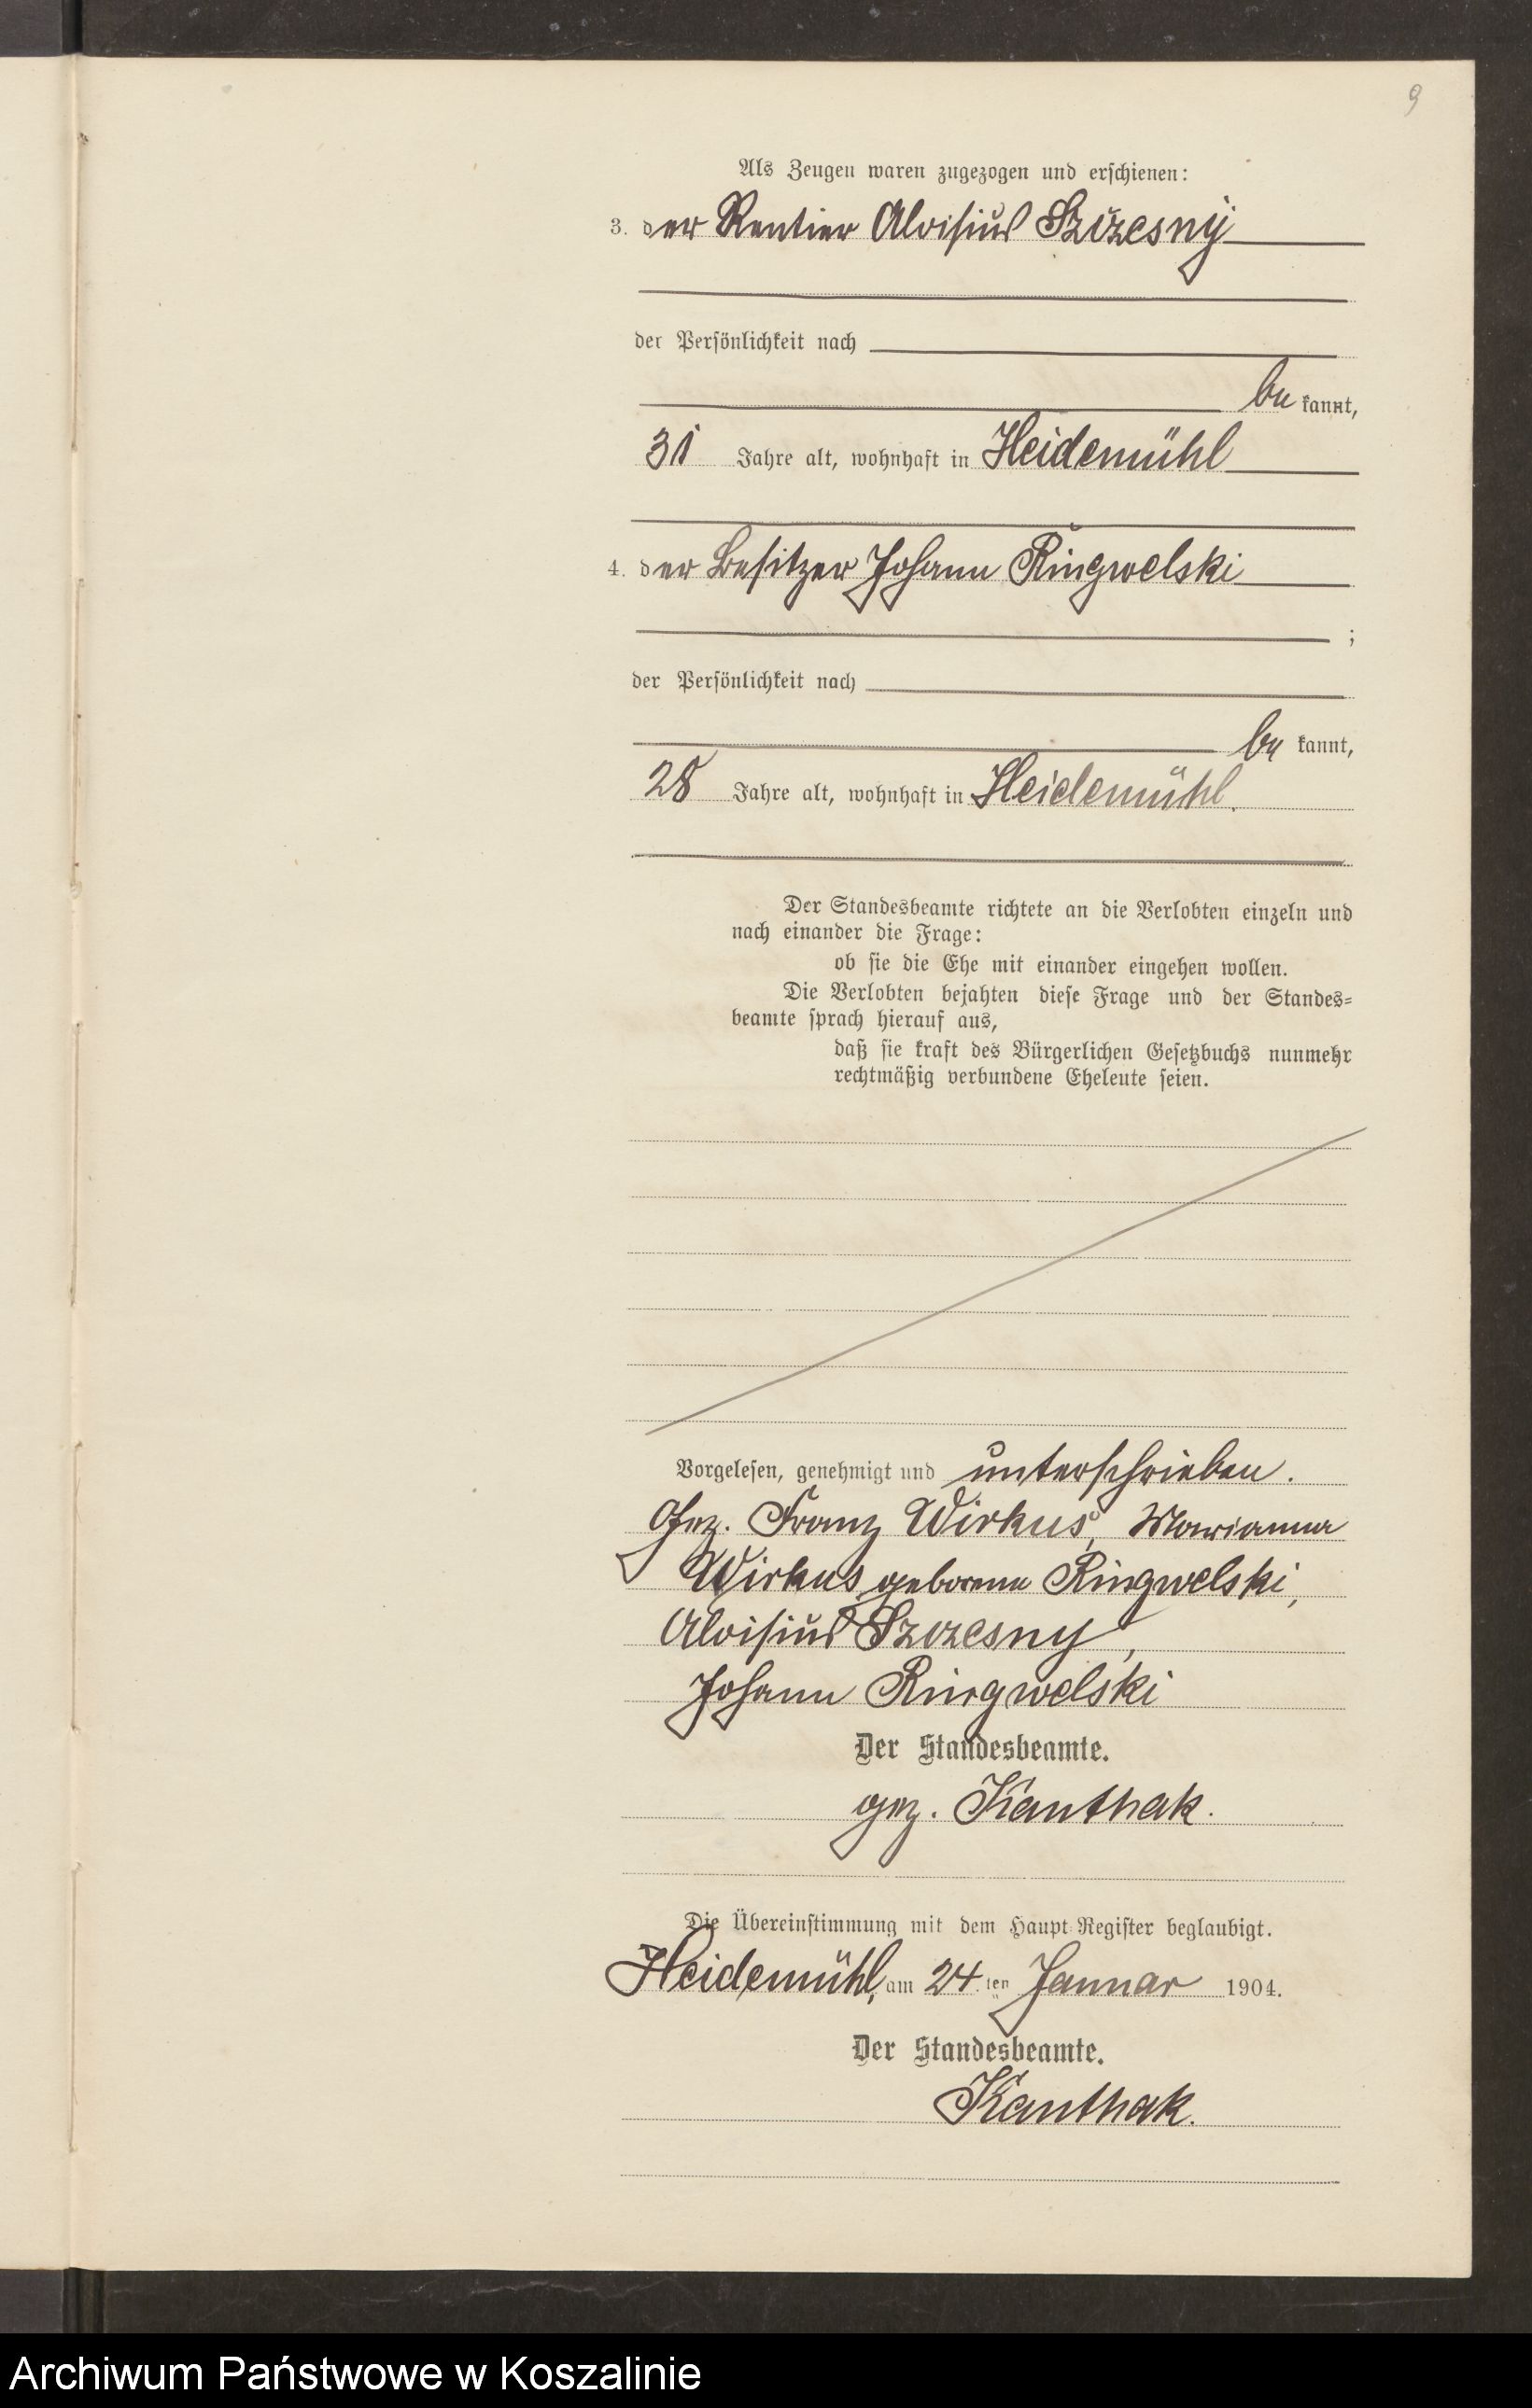 9
Als Zeugen waren zugezogen und erschienen:
3. der Rentier Aloisius Szczesny
der Persönlichkeit nach
be kannt,
31 Jahre alt, wohnhaft in Heidemühl
4. der Besitzer Johann Ringwelski
;
der Persönlichkeit nach
be kannt,
28 Jahre alt, wohnhaft in Heidemühl.
Der Standesbeamte richtete an die Verlobten einzeln und
nach einander die Frage:
ob sie die Ehe mit einander eingehen wollen.
Die Verlobten bejahten diese Frage und der Standes-
beamte sprach hierauf aus,
daß sie kraft des Bürgerlichen Gesetzbuchs nunmehr
rechtmäßig verbundene Eheleute seien.
Vorgelesen, genehmigt und unterschrieben.
Gez. Franz Wirkus, Marianna
Wirkus geborene Ringwelski,
Aloisius Szczesny,
Johann Ringwelski
Der Standesbeamte.
gez. Kanthak.
Die Übereinstimmung mit dem Haupt-Register beglaubigt.
Heidemühl, am 24.ten Januar 1904.
Der Standesbeamte.
Kanthak.
Archiwum Państwowe w Koszalinie